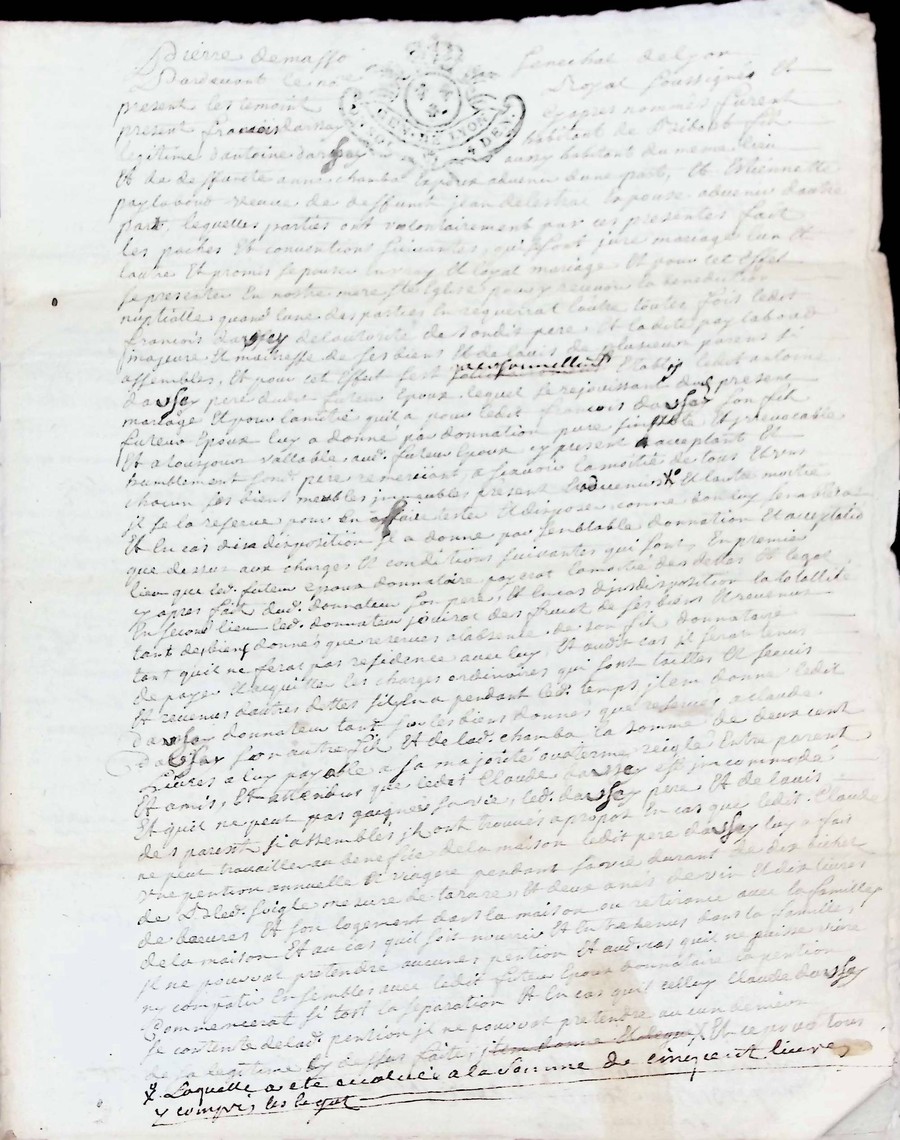 Pierre demasso Senechal de Lyon
Pardevant le nore Royal soussigné Et
GEN. DE LYON
present les temoins cy apres nommés furent
present francois darssay habitant de St Ridont fils
legitime d'antoine darssay aussy habitant du meme lieu
Et de deffuncte anne chamba Epoux advenir d'une part, Et Estiennette
pay labout veuve de deffunt jean delestra Epouse advenir d'autre
part, lesquelles parties ont volontairement par ces presentes fait
les paches Et conventions suivantes, qu'ils sont juré mariage l'un Et
l'autre Et promis s'epouser en vray Et loyal mariage Et pour cet Effet
se presenter En nostre mere Ste Eglise pour y recevoir la benediction
nuptialle quand l'une des parties En requerrat l'autre toutes fois ledit
francois darssey de l'autorité de sondit pere, Et ladite pay labout
majeure Et maitresse de ses biens Et de l'avis de plusieur parens Sy
assemblés, Et pour cet Effet s'est personnellemt Etably ledit antoine
darssey pere dudit futeur Epoux lequel se rejouissant dud present
mariage Et pour l'amitié quil a pour ledit francois darssey son fils
futeur Epoux luy a donné par donnation pure simple Et jrrevocable
Et a tousjours vallable aud. futeur Epoux cy present acceptant Et
humblement sond. pere remerciant, a scavoir la moitié de tous Et uns
chacun ses biens meubles jmmeubles present Et advenir X Et l'autre moitié
jl se la reserve pour En faire tester Et disposer comme bon luy semblera
Et En cas d'jndisposition jl a donné par semblable donnation Et acceptation
que dessus aux charges Et conditions suivantes qui sont, En premier
lieu que led. futeur epoux donnataire payerat la moitié des dettes Et legat
cy apres fait dud. donnateur son pere, Et En cas d'jndisposition la totallité
En second lieu led. donnateur jouirat des fruit de ses biens Et revenus
tant des biens donnés que reservés a l'absence de son fils donnataire
tant qu'il ne ferat pas residence avec luy, Et audit cas jl serat tenus
de payer Et acquitter les charges ordinaires qui sont tailles Et servis
Et revenus d'autres dettes s'il y En a pendant led. temps jtem donne ledit
darssay donnateur tant sur les biens donnés que reservés, a claude
darssay son autre fils Et de lad. chamba la somme de deux cent
Livres a luy payable a sa majorité ou a terme reiglé Entre parent
Et amis, Et attendus que ledit Claude darssey est jncommodé
Et qu'il ne peut pas gaigner sa vie, led. darssey pere Et de l'avis
des parents sy assemblés jls ont trouvés a propos En cas que ledit Claude
ne peut travailler au benefice de la maison ledit pere darssey luy a fait
une pention annuelle Et viagere pendant sa vie durant de dix bichet
de bled. soigle mesure de tarare, Et deux anés de vin Et dix livres
de beures Et son logement dans la maison ou retirance avec la famille
de la maison Et au cas qu'il soit nourris Et Entretenus dans la famille,
jl ne pouvrat pretendre aucunes pention Et aud. cas qu'il ne puisse vivre
ny compatir Ensembles avec ledit futeur Epoux donnataire la pention
Commencerat si tost la separation Et En cas que celluy Claude darssey
se contente de lad. pention jl ne pouvrat pretendre aucun denier
de la legitime cy dessus faite, X Et ce pour tous
X Laquelle a eté evaluée a la somme de cinq cent livres
y compris les legat